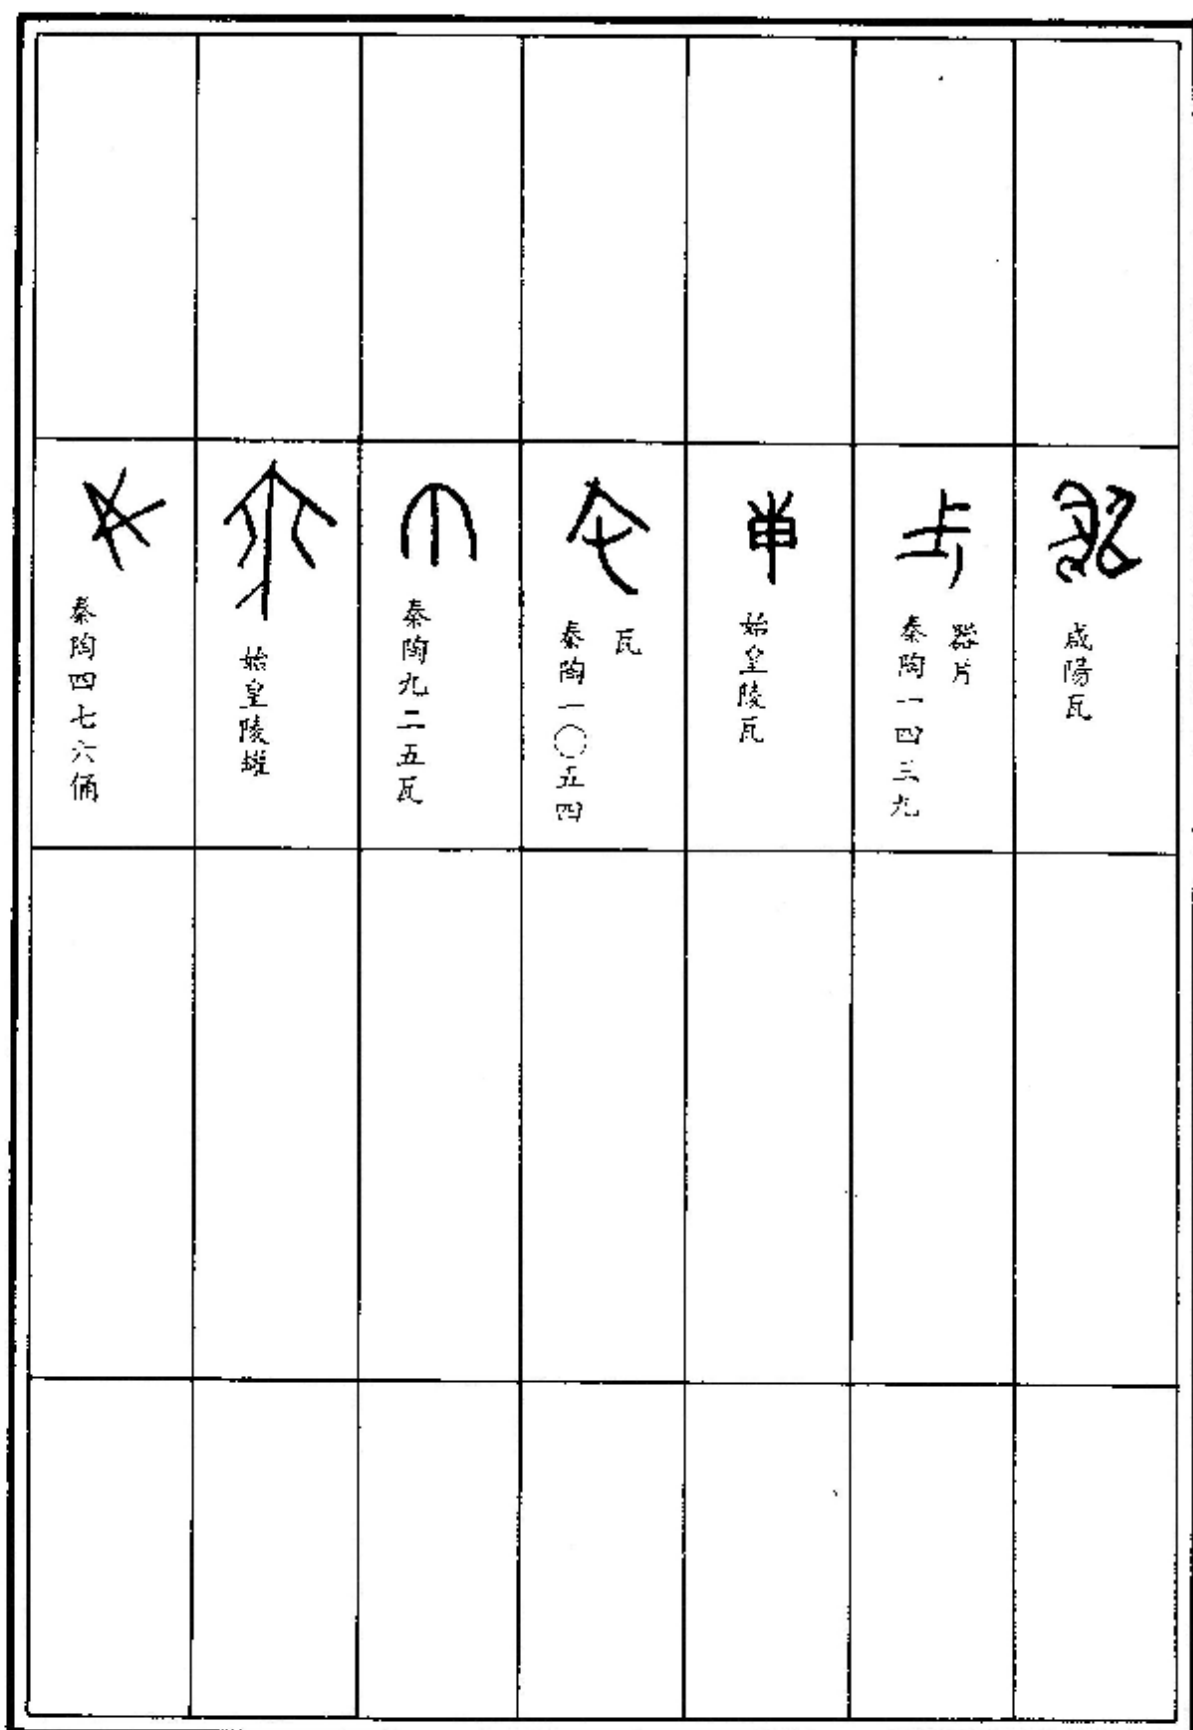 咸陽瓦
秦陶一四三九
器片
始皇陵瓦
秦陶一〇五四
瓦
秦陶九二五瓦
始皇陵罐
秦陶四七六俑